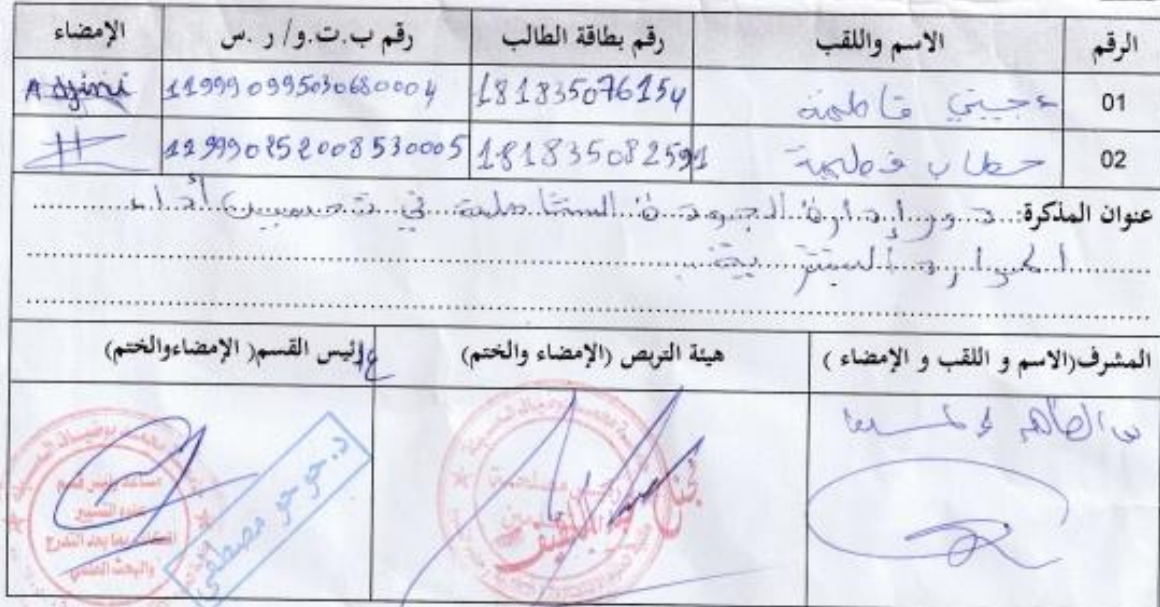 الرقم الاسم واللقب رقم بطاقة الطالب رقم ب.ت.و/ ر .س الإمضاء
01 عجيني فاطمة 181835076154 119990995030680004 Adjini
02 حطاب فطيمة 181835082591 119990252008530005
عنوان المذكرة: دور إدارة الجودة الشاملة في تحسين أداء
الموارد البشرية
المشرف(الاسم و اللقب و الإمضاء ) هيئة التربص (الإمضاء والختم) رئيس القسم( الإمضاءوالختم)
بن الطاهر
مساعد رئيس قسم
علوم التسيير
المكلف بما بعد التدرج
والبحث العلمي
د. حو حو مصطفى